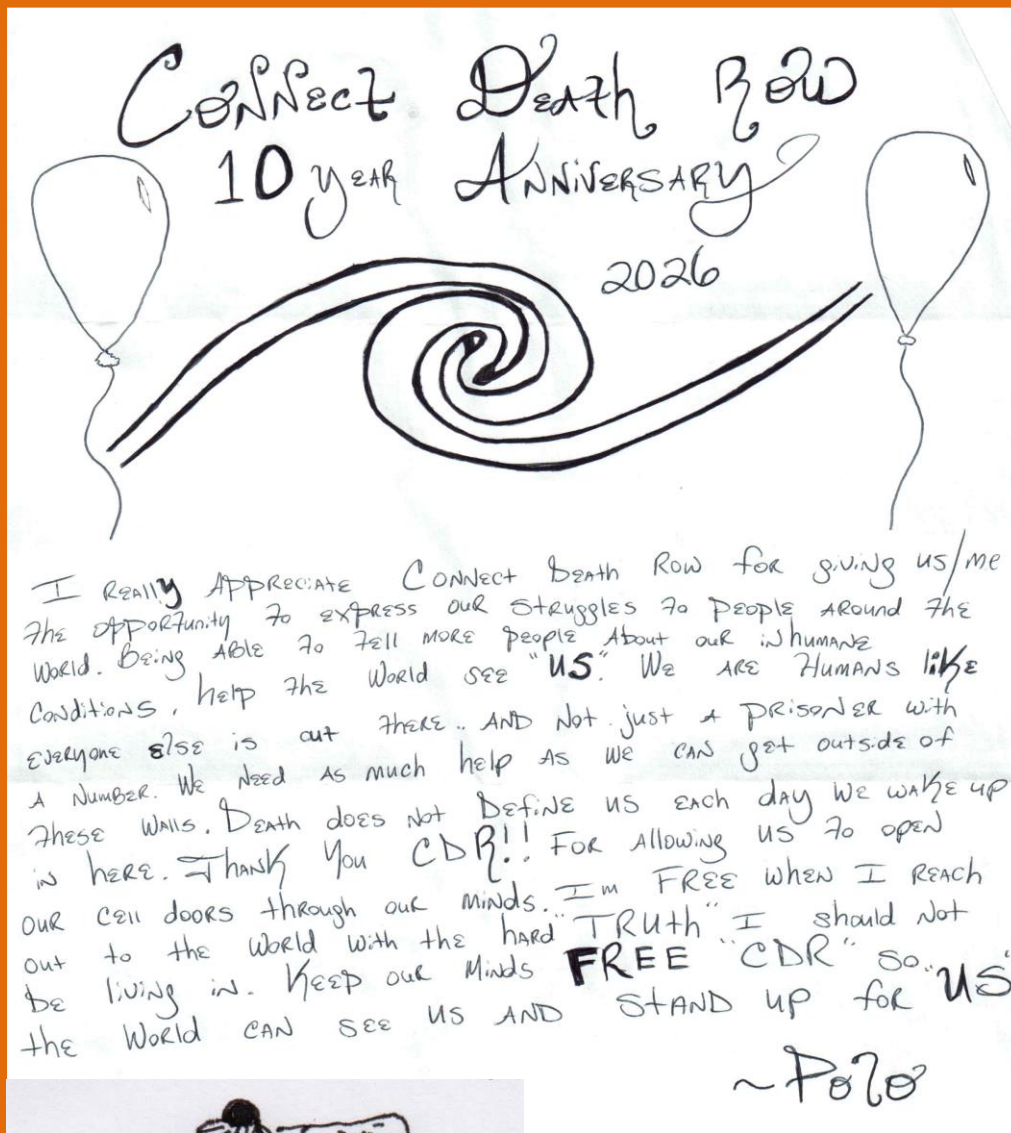 Connect Death Row
10 year Anniversary
2026
I Really Appreciate Connect Death Row for giving us/me
the opportunity to express our struggles to people around the
world. Being able to tell more people about our inhumane
conditions, help the world see "US". We are Humans like
everyone else is out there.. And not just a prisoner with
a number. We need as much help as we can get outside of
these walls. Death does not define us each day we wake up
in here. Thank you CDR!! For allowing us to open
our cell doors through our minds. I'm FREE when I reach
out to the world with the hard "TRuth" I should not
be living in. Keep our minds FREE "CDR" so
the world can see us and stand up for "US"
~Polo